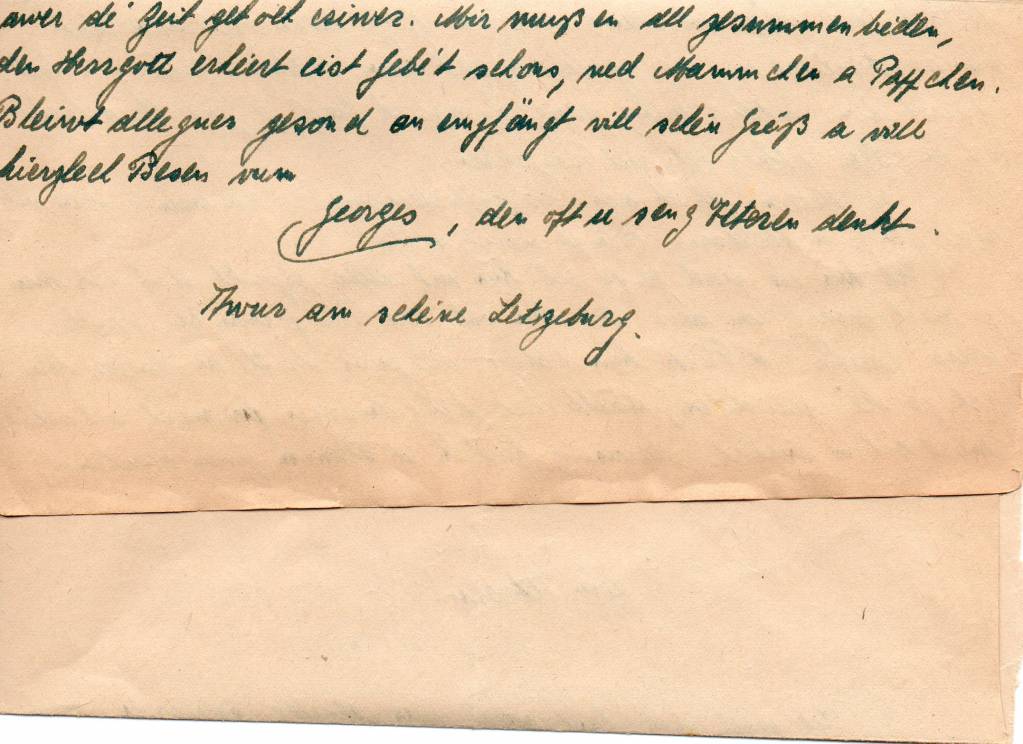 awer dé Zeit get och eriwer. Mir mußen all zesummen bieden,
den Herrgott erhéert eist Gebét schons, ned Mammchen a Pappchen.
Bleiwt alleguer gesond an empfängt vill schéin Gréiß a vill
hierzlech Besen vum
Georges, den oft u seng Elteren denkt.
Zwur am schéine Letzeburg.